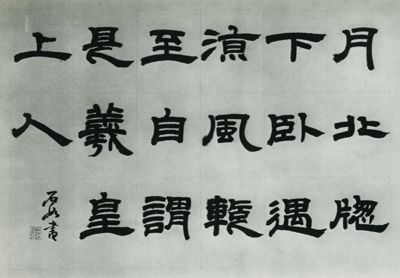 月北牕
下臥遇
涼風暫
至自謂
是羲皇
上人
石如書